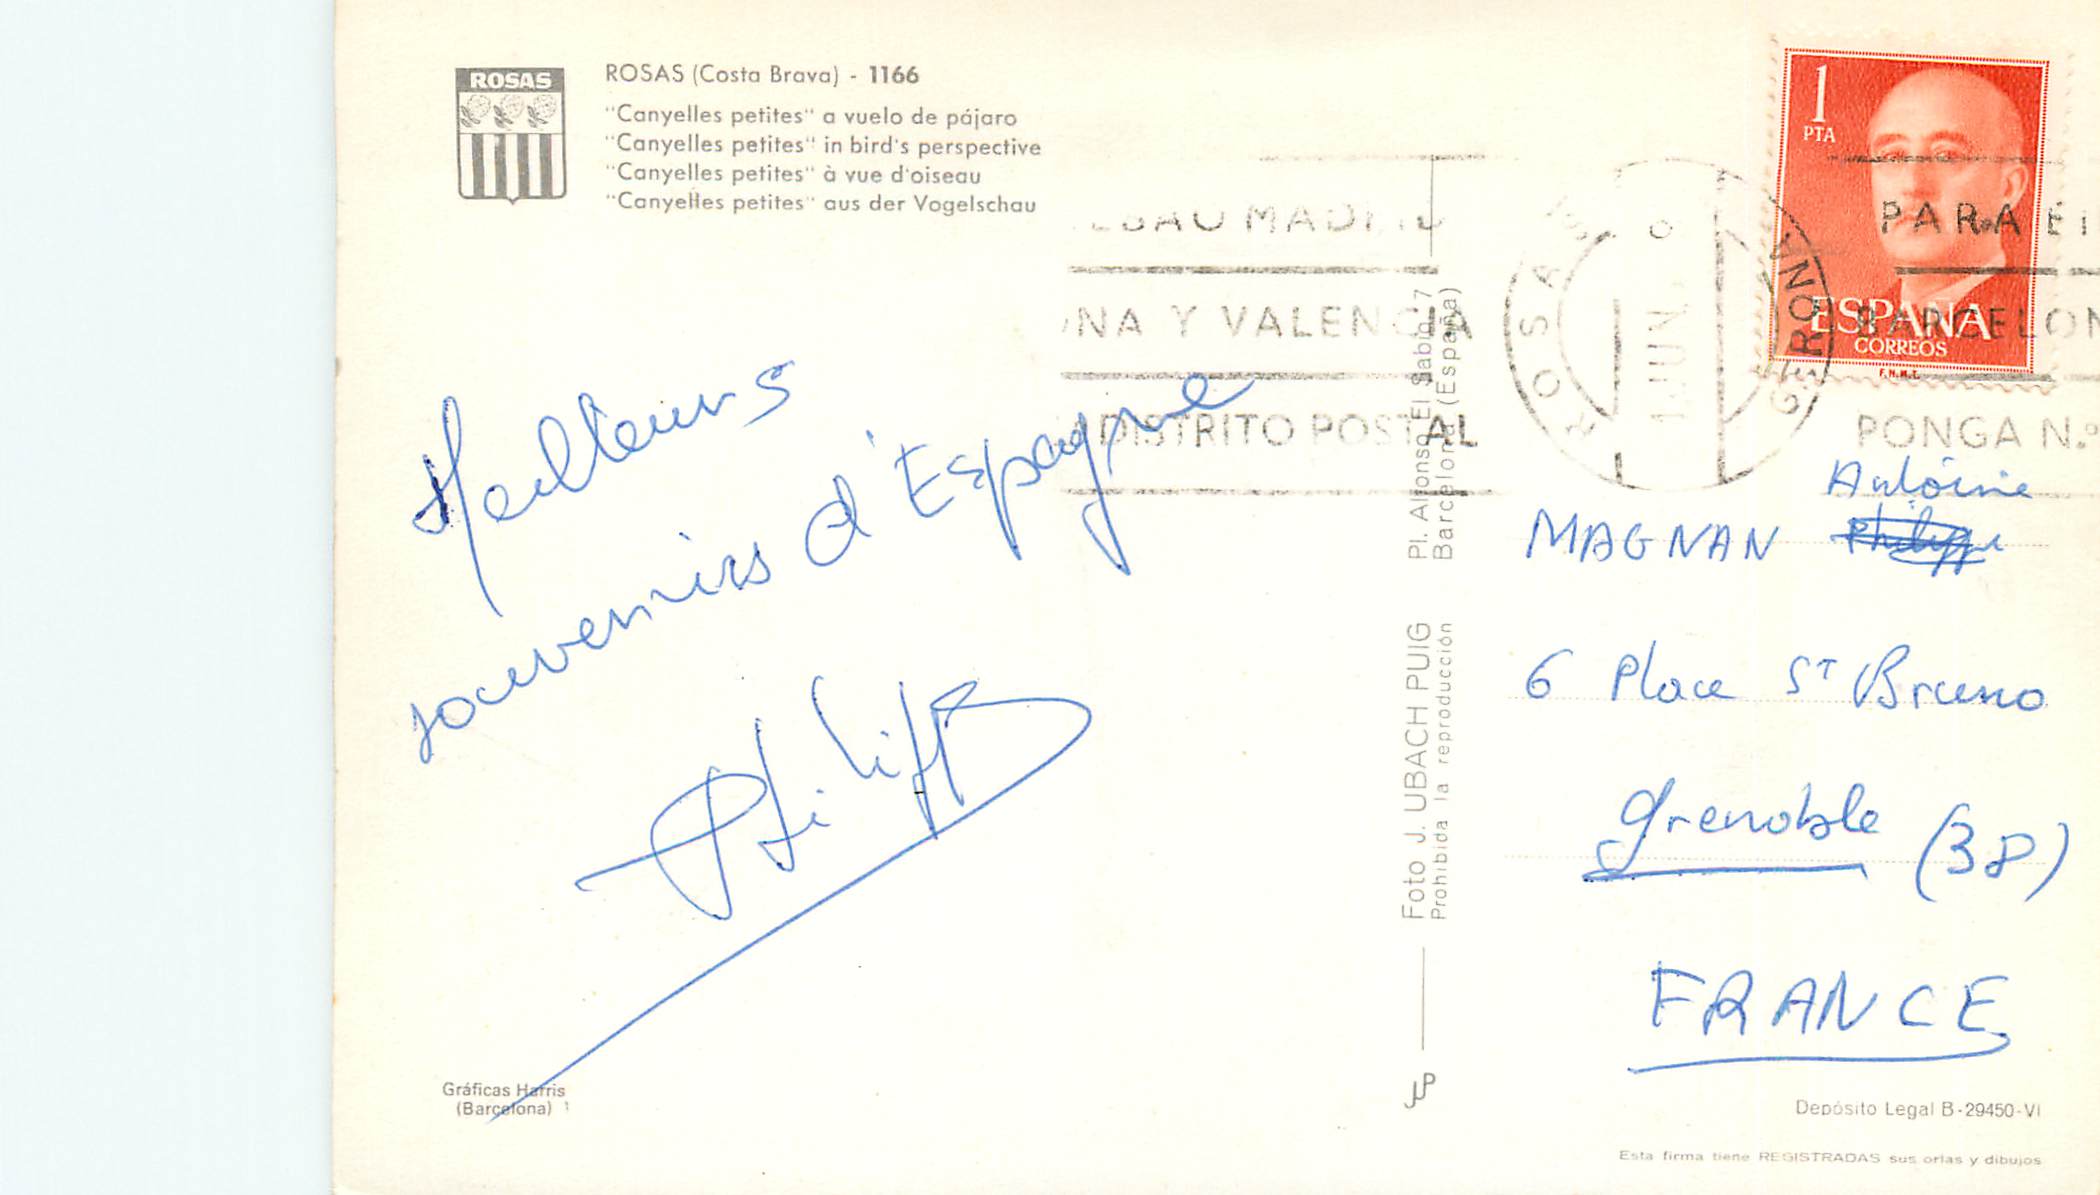 ROSAS
ROSAS (Costa Brava) - 1166
"Canyelles petites" a vuelo de pájaro
"Canyelles petites" in bird's perspective
"Canyelles petites" à vue d'oiseau
"Canyelles petites" aus der Vogelschau
1
PTA
ESPAÑA
CORREOS
F.N.M.T.
MADRID
NA Y VALENCIA
DISTRITO POSTAL
ROSAS
GERONA
JUN.
PARA
BARCELON
PONGA N.º
Meilleurs
souvenirs d'Espagne
Philippe
Pl. Alfonso El Sabio, 7
Barcelona (España)
Foto J. UBACH PUIG
Prohibida la reproducción
JUP
Antoine
MAGNAN Philippe
6 Place ST Bruno
Grenoble (38)
FRANCE
Gráficas Harris
(Barcelona)
Depósito Legal B-29450-VI
Esta firma tiene REGISTRADAS sus orlas y dibujos